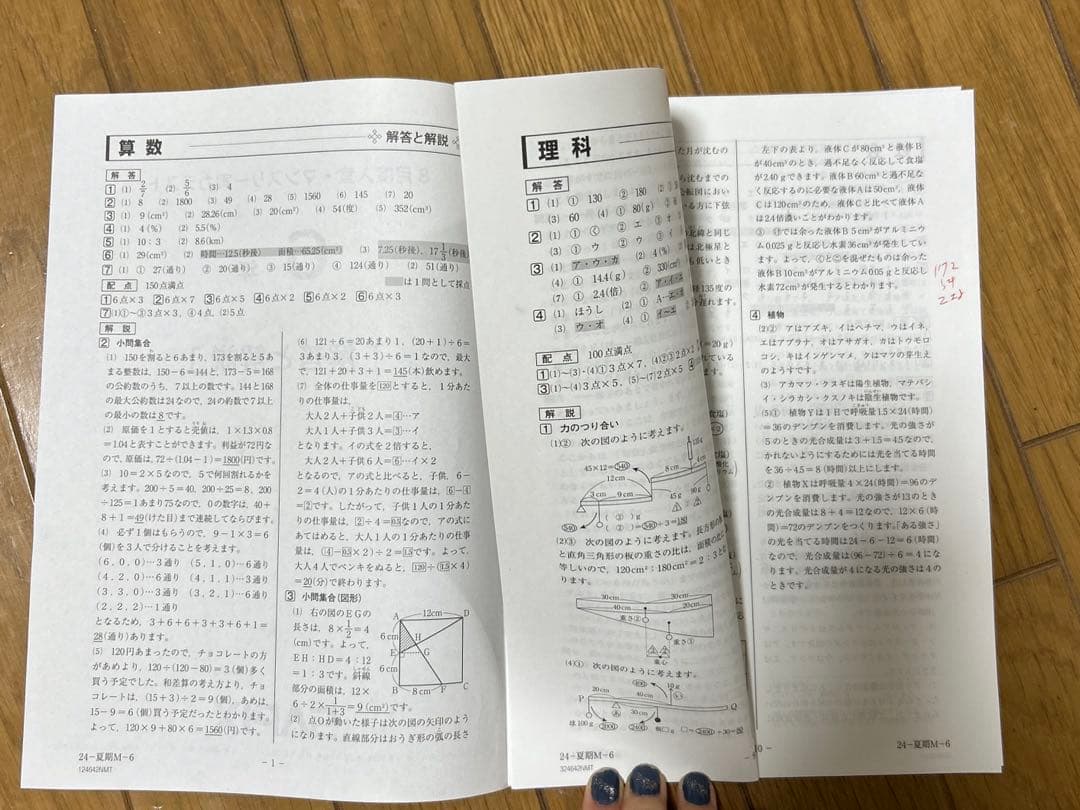 算数
解答と解説
解答
1 (1) 2/7 (2) 5/6 (3) 4
2 (1) 8 (2) 1800 (3) 49 (4) 28 (5) 1560 (6) 145 (7) 20
3 (1) 9(cm²) (2) 28.26(cm) (3) 20(cm²) (4) 54(度) (5) 352(cm³)
4 (1) 4(%) (2) 5.5(%)
5 (1) 10:3 (2) 8.6(km)
6 (1) 29(cm²) (2) 時間…12.5(秒後) 面積…65.25(cm²) (3) 7.25(秒後), 17 1/3(秒後
7 (1) ① 27(通り) ② 20(通り) ③ 15(通り) ④ 124(通り) (2) 51(通り)
配点 150点満点
は1問として採点
1 6点×3 2 6点×7 3 6点×5 4 6点×2 5 6点×2 6 6点×3
7 (1)①~③3点×3, ④4点, (2)5点
解説
2 小問集合
(1) 150を割ると6あまり, 173を割ると5あ
まる整数は, 150-6=144と, 173-5=168
の公約数のうち, 7以上の数です。144と168
の最大公約数は24なので, 24の約数で7以上
の最小の数は8です。
(2) 原価を1とすると売値は, 1×1.3×0.8
=1.04と表すことができます。利益が72円な
ので, 原価は, 72÷(1.04-1)=1800(円)です。
(3) 10=2×5なので, 5で何回割れるかを
考えます。200÷5=40, 200÷25=8, 200
÷125=1あまり75なので, 0の数字は, 40+
8+1=49(けた目)まで連続してならびます。
(4) 必ず1個はもらうので, 9-1×3=6
(個)を3人で分けることを考えます。
(6.0.0)…3通り (5.1.0)…6通り
(4.2.0)…6通り (4.1.1)…3通り
(3.3.0)…3通り (3.2.1)…6通り
(2.2.2)…1通り
となるため, 3+6+6+3+3+6+1=
28(通り)あります。
(5) 120円あまったので, チョコレートの方
があめより, 120÷(120-80)=3(個)多く
買う予定でした。和差算の考え方より, チョ
コレートは, (15+3)÷2=9(個), あめは,
15-9=6(個)買う予定だったとわかります。
よって, 120×9+80×6=1560(円)です。
(6) 121÷6=20あまり1, (20+1)÷6=
3あまり3, (3+3)÷6=1なので, 最大
で, 121+20+3+1=145(本)飲めます。
(7) 全体の仕事量を120とすると, 1分あた
りの仕事量は,
大人2人+子供2人=4…ア
大人1人+子供3人=3…イ
となります。イの式を2倍すると,
大人2人+子供6人=6…イ×2
となるので, アの式と比べると, 子供, 6-
2=4(人)の1分あたりの仕事量は, 6-4
=2です。したがって, 子供1人の1分あた
りの仕事量は, 2÷4=0.5なので, アの式に
あてはめると, 大人1人の1分あたりの仕事
量は, (4-0.5×2)÷2=1.5です。よって,
大人4人でペンキをぬると, 120÷(1.5×4)
=20(分)で終わります。
3 小問集合(図形)
(1) 右の図のEGの
長さは, 8×1/2=4
(cm)です。よって,
EH:HD=4:12
=1:3です。斜線
部分の面積は, 12×
6÷2×1/(1+3)=9(cm²)です。
(2) 点Oが動いた様子は次の図の矢印のよう
になります。直線部分はおうぎ形の弧の長さ
12cm
A
D
6cm
H
E
G
6cm
B
8cm
F
C
24-夏期M-6
124642NMT
-1-
理科
解答
1 (1) ① 130 ② 180
(3) 60 (4) ① 80(g)
2 (1) ① く ② エ
(3) ① ウ ② ウ
3 (1) ア・ウ・カ (2) 4(%)
(4) ① 14.4(g) ② 33(cm³)
(7) ① 2.4(倍) ② ア・イ・エ
4 (1) ほうし (2) ① A-エ
(3) ウ・オ (4) ① イ-エ
配点 100点満点
1 (1)~(3)・(4)①3点×7, (4)②③2点×2
3 (1)~(4)3点×5, (5)~(7)2点×5
解説
1 力のつり合い
(1)② 次の図のように考えます。
45×12=540
8cm
4cm
3cm
9cm
45g
90g
540
( ③ )g
(2)③ 次の図のように考えます。長方形の板
と直角三角形の板の重さの比は, 面積の比に
等しいので, 120cm²:180cm²=2:3とな
ります。
30cm
30cm
40cm
20cm
重さ②
重さ③
重心
(4)① 次の図のように考えます。
20cm
40cm
10g
P
Q
30cm
球100g
24-夏期M-6
324642NMT
左下の表より, 液体Cが80cm³と液体B
が40cm³のとき, 過不足なく反応して食塩
が2.40gできます。液体B60cm³と過不足な
く反応するのに必要な液体Aは50cm³, 液体
Cは120cm³のため, 液体Cと比べて液体A
は2.4倍濃いことがわかります。
③ ⑦では余った液体B5cm³がアルミニウ
ム0.025gと反応し水素36cm³が発生してい
ます。よって, ©と©を混ぜたものは余った
液体B10cm³がアルミニウム0.05gと反応し
水素72cm³が発生するとわかります。
4 植物
(2)② アはアズキ, イはヘチマ, ウはイネ,
エはアブラナ, オはアサガオ, カはトウモロ
コシ, キはインゲンマメ, クはマツの芽生え
のようすです。
(3) アカマツ・クヌギは陽生植物, マテバシ
イ・シラカシ・クスノキは陰生植物です。
(5)① 植物Yは1日で呼吸量1.5×24(時間)
=36のデンプンを消費します。光の強さが
5のときの光合成量は3+1.5=4.5なので,
かれないようにするためには光を当てる時間
を36÷4.5=8(時間)以上にします。
② 植物Xは呼吸量4×24(時間)=96のデ
ンプンを消費します。光の強さが13のとき
の光合成量は8+4=12なので, 12×6(時
間)=72のデンプンをつくります。「ある強さ」
の光を当てる時間は24-6-12=6(時間)
なので, 光合成量が(96-72)÷6=4にな
ります。光合成量が4になる光の強さは4の
ときです。
24-夏期M-6